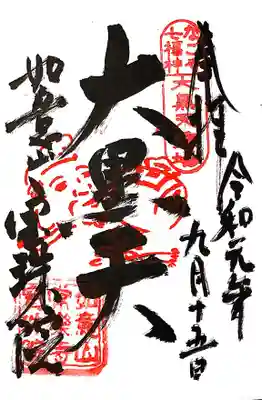 奉拝
令和元年
九月十五日
なごや
七福神
大黒天
大黒天
如意山
宝珠院
如意山